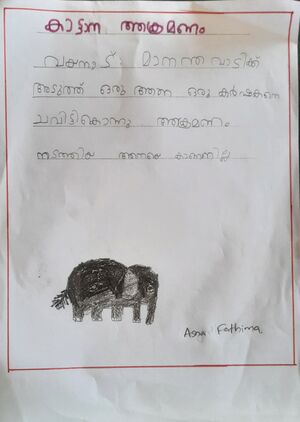 കാട്ടാന ആക്രമണം
വയനാട്: മാനന്തവാടിക്ക്
അടുത്ത് ഒരു ആന ഒരു കർഷകനെ
ചവിട്ടികൊന്നു ആക്രമണം
നടത്തിയ ആനയെ കാണാനില്ല
Fathima